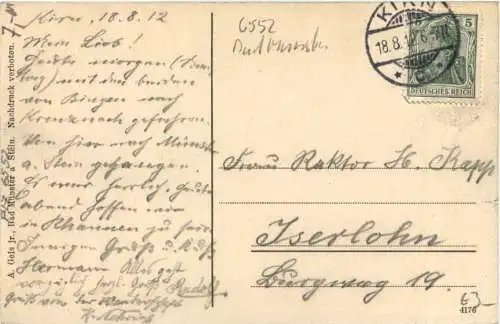 Kirn, 18.8.12
Mein Lieb!
Heute morgen
mit den beiden
von Bingen nach
Kreuznach gefahren.
Von hier nach Münster
a. Stein gefahren.
Es war herrlich. Heute
Abend hoffen wir
in Rhaunen zu sein.
Innigen Gruß u. Kuß
Hermann Alles gut
Gruß Rudolf
Gruß von der
6552
Bad Münster
KIRN
18.8.12 6-7N
5
DEUTSCHES REICH
Frau Raktor H. Kapp
Iserlohn
Burgweg 19.
63
4176
A. Gels jr., Bad Münster a. Stein. Nachdruck verboten.